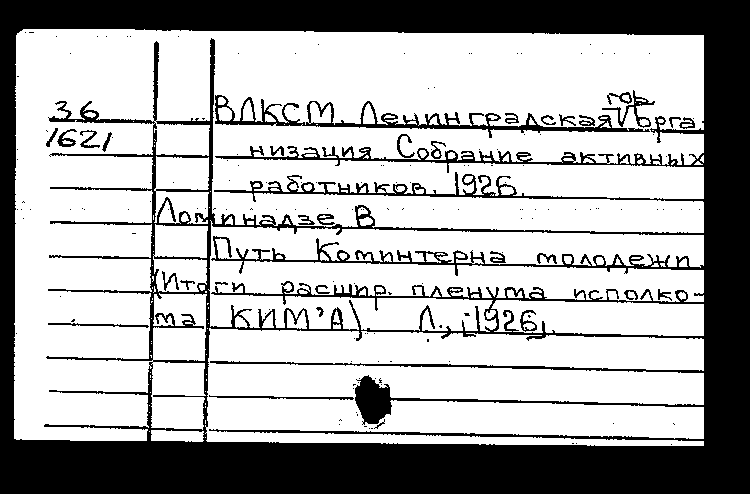 36 ВЛКСМ. Ленинградская гор орга-
1621 низация. Собрание активных
работников. 1926.
Ломинадзе, В
Путь Коминтерна молодежи.
(Итоги расшир. пленума исполко-
ма КИМ'А). Л., [1926].